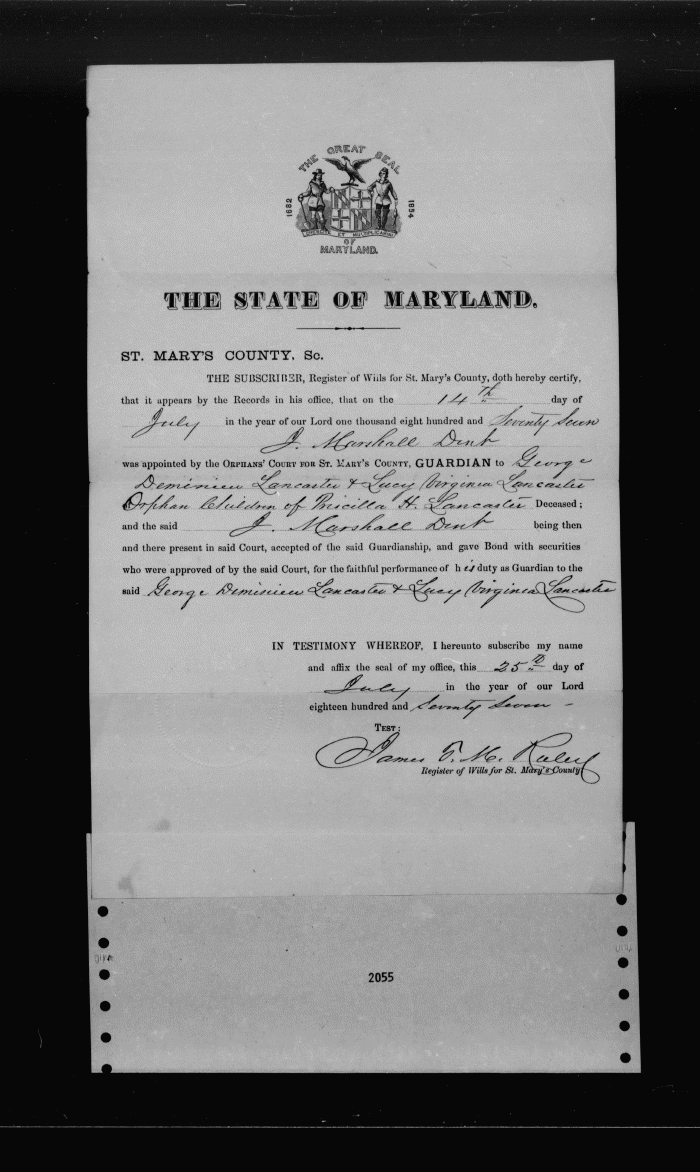 THE GREAT SEAL
1632 1854
CRESCITE ET MULTIPLICAMINI
OF
MARYLAND.
THE STATE OF MARYLAND.
ST. MARY'S COUNTY, Sc.
THE SUBSCRIBER, Register of Wills for St. Mary's County, doth hereby certify,
that it appears by the Records in his office, that on the 14th day of
July in the year of our Lord one thousand eight hundred and Seventy Seven
J. Marshall Dent
was appointed by the ORPHANS' COURT FOR ST. MARY'S COUNTY, GUARDIAN to George
Lancaster & Lucy Virginia Lancaster
Orphan Children of Pricilla H. Lancaster Deceased;
and the said J. Marshall Dent being then
and there present in said Court, accepted of the said Guardianship, and gave Bond with securities
who were approved of by the said Court, for the faithful performance of his duty as Guardian to the
said George Lancaster & Lucy Virginia Lancaster
IN TESTIMONY WHEREOF, I hereunto subscribe my name
and affix the seal of my office, this 25th day of
July in the year of our Lord
eighteen hundred and Seventy Seven -
TEST:
James T. M. Raley
Register of Wills for St. Mary's County
2055